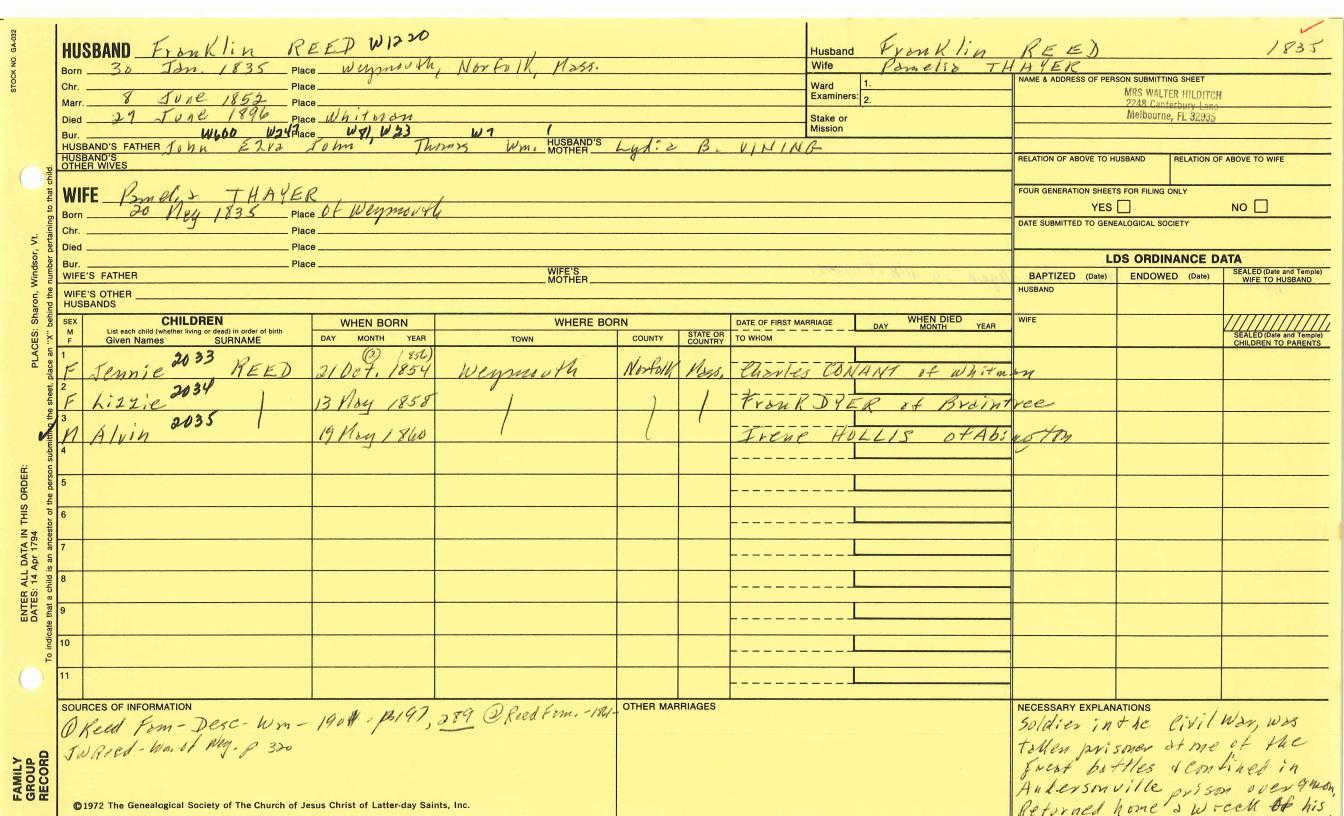 STOCK NO. GA-032
HUSBAND Franklin REED W1220
Born 30 Jan. 1835 Place Weymouth, Norfolk, Mass.
Chr. Place
Marr. 8 June 1852 Place
Died 29 June 1896 Place Whitman
Bur. Place
W600 W247 W81, W23 W7 1
HUSBAND'S FATHER John Ezra John Thomas Wm. HUSBAND'S MOTHER Lydia B. VINING
HUSBAND'S OTHER WIVES
WIFE Pamelia THAYER
Born 20 May 1835 Place of Weymouth
Chr. Place
Died Place
Bur. Place
WIFE'S FATHER WIFE'S MOTHER
WIFE'S OTHER HUSBANDS
Husband Franklin REED 1835
Wife Pamelia THAYER
Ward Examiners: 1.
2.
Stake or Mission
NAME & ADDRESS OF PERSON SUBMITTING SHEET
MRS WALTER HILDITCH
2248 Canterbury Lane
Melbourne, FL 32935
RELATION OF ABOVE TO HUSBAND RELATION OF ABOVE TO WIFE
FOUR GENERATION SHEETS FOR FILING ONLY
YES NO
DATE SUBMITTED TO GENEALOGICAL SOCIETY
LDS ORDINANCE DATA
BAPTIZED (Date) ENDOWED (Date) SEALED (Date and Temple) WIFE TO HUSBAND
HUSBAND
WIFE
SEALED (Date and Temple) CHILDREN TO PARENTS
SEX M F CHILDREN WHEN BORN WHERE BORN DATE OF FIRST MARRIAGE WHEN DIED
List each child (whether living or dead) in order of birth
Given Names SURNAME DAY MONTH YEAR TOWN COUNTY STATE OR COUNTRY TO WHOM DAY MONTH YEAR
1 F Jennie 2033 REED 21 Oct. 1854 (2) (1856) Weymouth Norfolk Mass. Charles CONANT of Whitman
2 F Lizzie 2034 13 May 1858 Frank DYER of Braintree
3 M Alvin 2035 19 May 1860 Irene HOLLIS of Abington
4
5
6
7
8
9
10
11
SOURCES OF INFORMATION
① Reed Fam - Desc - Wm - 1901 - p197, 289 ② Reed Fam. -
JWReed - Wm of Wey. p 320
OTHER MARRIAGES
NECESSARY EXPLANATIONS
Soldier in the Civil War, was
taken prisoner at one of the
great battles & confined in
Andersonville prison over 9 mon,
Returned home a wreck of his
©1972 The Genealogical Society of The Church of Jesus Christ of Latter-day Saints, Inc.
FAMILY GROUP RECORD
ENTER ALL DATA IN THIS ORDER:
DATES: 14 Apr 1794
PLACES: Sharon, Windsor, Vt.
To indicate that a child is an ancestor of the person submitting the sheet, place an "X" behind the number pertaining to that child.